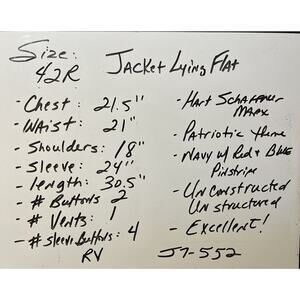 Size: 42R
Jacket Lying Flat
- Chest: 21.5"
- Waist: 21"
- Shoulders: 18"
- Sleeve: 24"
- Length: 30.5"
- # Buttons 2
- # Vents: 1
- # Sleeve Buttons: 4
RV
- Hart Schaffner Marx
- Patriotic theme
- Navy w/ Red & Blue Pinstripe
- Unconstructed
Unstructured
- Excellent!
J7-552